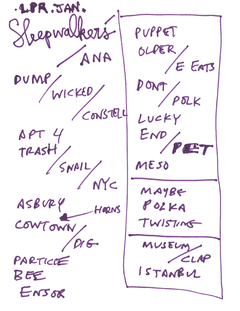 LPR. JAN.
Sleepwalkers
ANA
DUMP
WICKED
CONSTELL
APT 4
TRASH
SNAIL
NYC
ASBURY
HORNS
COWTOWN
DIG
PARTICLE
BEE
ENSOR
PUPPET
OLDER
E EATS
DONT
POLK
LUCKY
END
PET
MESO
MAYBE
POLKA
TWISTING
MUSEUM
CLAP
ISTANBUL